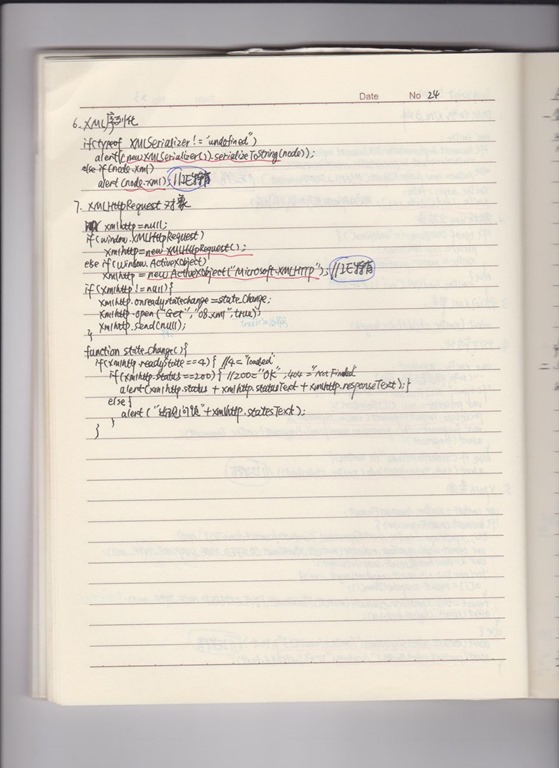 Date No 24
6. XML序列化
if(typeof XMLSerializer != "undefined")
alert((new XMLSerializer()).serializeToString(node));
else if(node.xml)
alert(node.xml); //IE特有
7. XMLHttpRequest 对象
xmlhttp=null;
if(window.XMLHttpRequest)
xmlhttp=new XMLHttpRequest();
else if(window.ActiveXObject)
xmlhttp = new ActiveXObject("Microsoft.XMLHTTP"); //IE特有
if(xmlhttp != null){
xmlhttp.onreadystatechange=state_Change;
xmlhttp.open("Get", "08.xml", true);
xmlhttp.send(null);
}
function state_Change(){
if(xmlhttp.readyState==4){ //4="loaded"
if(xmlhttp.status==200){ //200="OK", 404="Not Finded"
alert(xmlhttp.status + xmlhttp.statusText + xmlhttp.responseText);}
else{
alert("出现问题"+xmlhttp.statesText);
}
}